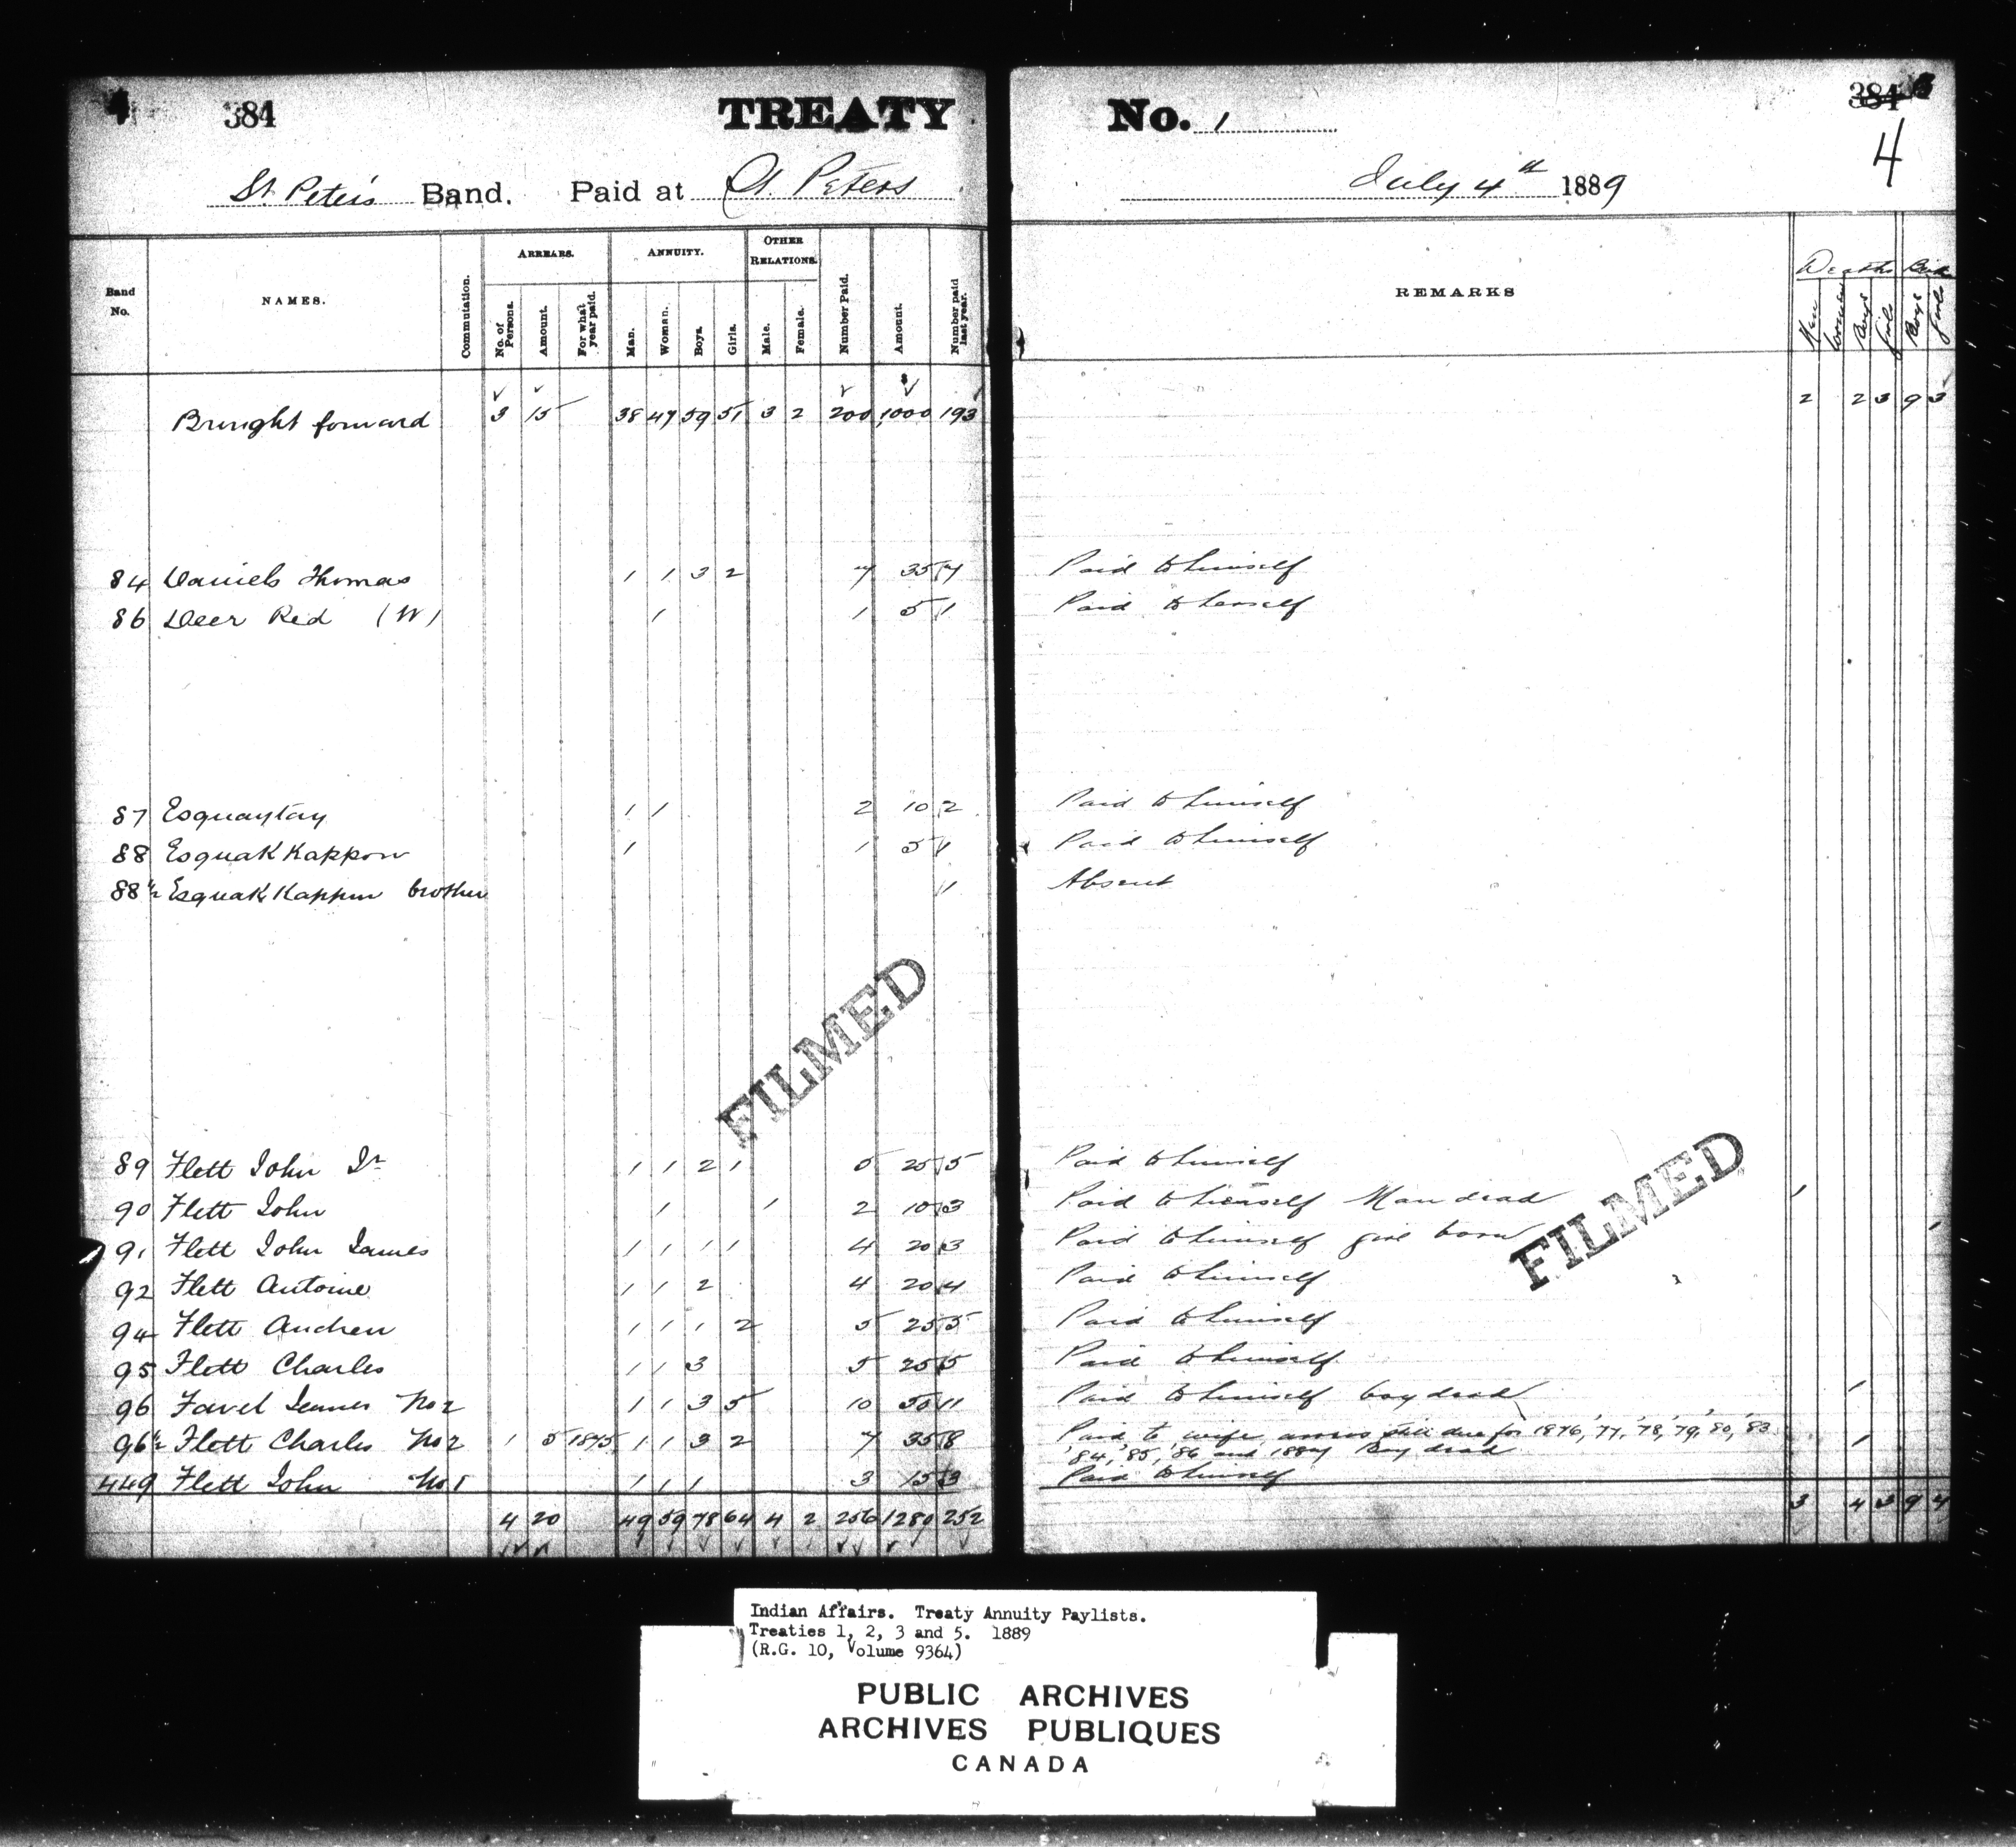 384 TREATY No. 1 384
4
St Peter's Band. Paid at St. Peters July 4th 1889
Band No. NAMES. Commutation. ARREARS. ANNUITY. OTHER RELATIONS. Number Paid. Amount. Number paid last year. REMARKS Deaths
No. of Persons. Amount. For what year paid. Man. Woman. Boys. Girls. Male. Female. Men Women Boys Girls Boys Girls
Brought forward 3 15 38 47 59 51 3 2 200 1000 193 2 2 3 9 3
84 Daniels Thomas 1 1 3 2 7 35 7 Paid to himself
86 Deer Red (W) 1 1 5 1 Paid to herself
87 Esquaytay 1 1 2 10 2 Paid to himself
88 Esquak Kappow 1 1 5 1 Paid to himself
88½ Esquak Kappow brother 1 Absent
FILMED
FILMED
89 Flett John Jr 1 1 2 1 5 25 5 Paid to himself
90 Flett John 1 1 2 10 3 Paid to herself Man dead 1
91 Flett John James 1 1 1 1 4 20 3 Paid to himself girl born 1
92 Flett Antoine 1 1 2 4 20 4 Paid to himself
94 Flett Andrew 1 1 1 2 5 25 5 Paid to himself
95 Flett Charles 1 1 3 5 25 5 Paid to himself
96 Favel James No 2 1 1 3 5 10 50 11 Paid to himself boy dead 1
96½ Flett Charles No 2 1 5 1875 1 1 3 2 7 35 8 Paid to wife arrears still due for 1876, '77, '78, '79, '80, '83
'84, '85, '86 and 1887 Boy dead 1
449 Flett John No 1 1 1 1 3 15 3 Paid to himself
4 20 49 59 78 64 4 2 256 1280 252 3 4 3 9 4
Indian Affairs. Treaty Annuity Paylists.
Treaties 1, 2, 3 and 5. 1889
(R.G. 10, Volume 9364)
PUBLIC ARCHIVES
ARCHIVES PUBLIQUES
CANADA